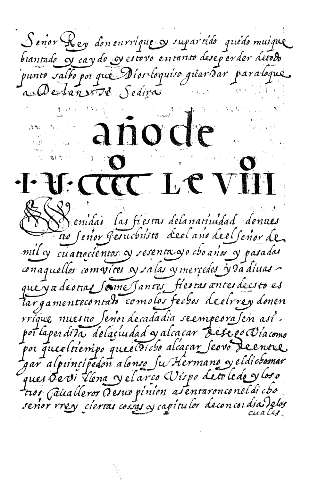 Señor Rey don enrrique y su partido quedo mui que
biantado y caydo y estovo en tanto de se perder de todo
punto salbo por que Dios lo quiso guardar para lo que
a Delante Se dira
año de
·I·U·CCCCº LxVIIIº
Venidas las fiestas de la natividad de nues
tro Señor Gesuchristo de el año de el Señor de
mil y cuatrocientos y sesenta y ocho años y pasados
con aquellos convites y salas y mercedes y Dadivas
que ya de otas Semejantes fiestas antes de esto es
largamente contado como los fechos de el rrey don en
rrique nuestro Señor de cada dia se empeorasen asi
por la perdida de la ciudad y alcaçar de Segovia como
por que el tiempo que el dicho alcaçar se ovo de entre
gar al principe don alonso su Hermano y el dicho mar
ques de Villena y el arcoVispo de toledo y los o
tros Cavalleros de su opinion asentaron con el dicho
señor rrey ciertas cosas y capitulos de concordia de los
cuales